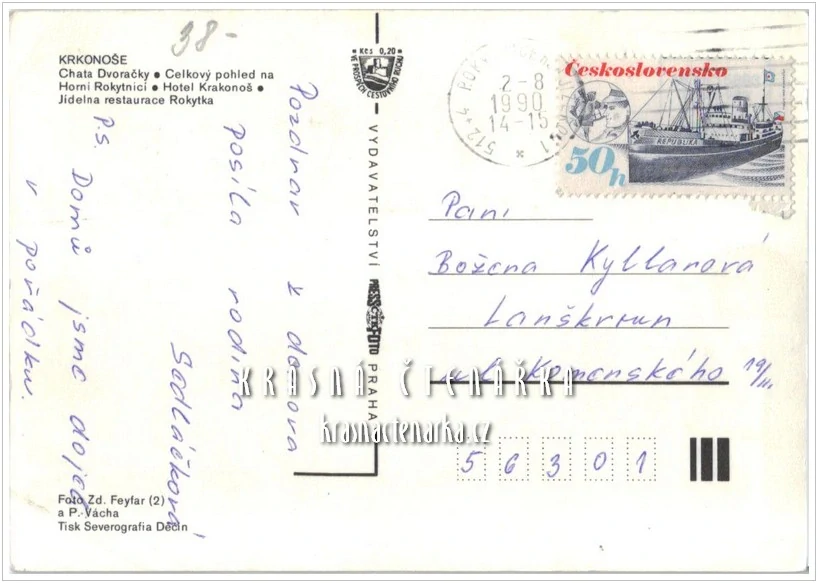 38-
KRKONOŠE
Chata Dvoračky • Celkový pohled na
Horní Rokytnici • Hotel Krakonoš •
Jídelna restaurace Rokytka
Kčs 0,20
VE PROSPĚCH CESTOVNÍHO RUCHU
Pozdrav z domova
posíla rodina
Sedláčková
P.S. Domů jsme dojeli
v pořádku.
Foto Zd. Feyfar (2)
a P. Vácha
Tisk Severografia Děčín
VYDAVATELSTVÍ PRESSFOTO PRAHA
ČTK
512 44
2-8
1990
14-15
Československo
REPUBLIKA
50h
Paní
Božena Kyllarová
Lanškroun
ul. Komenského 19/II.
56301
KRÁSNÁ ČTENÁŘKA
krasnactenarka.cz